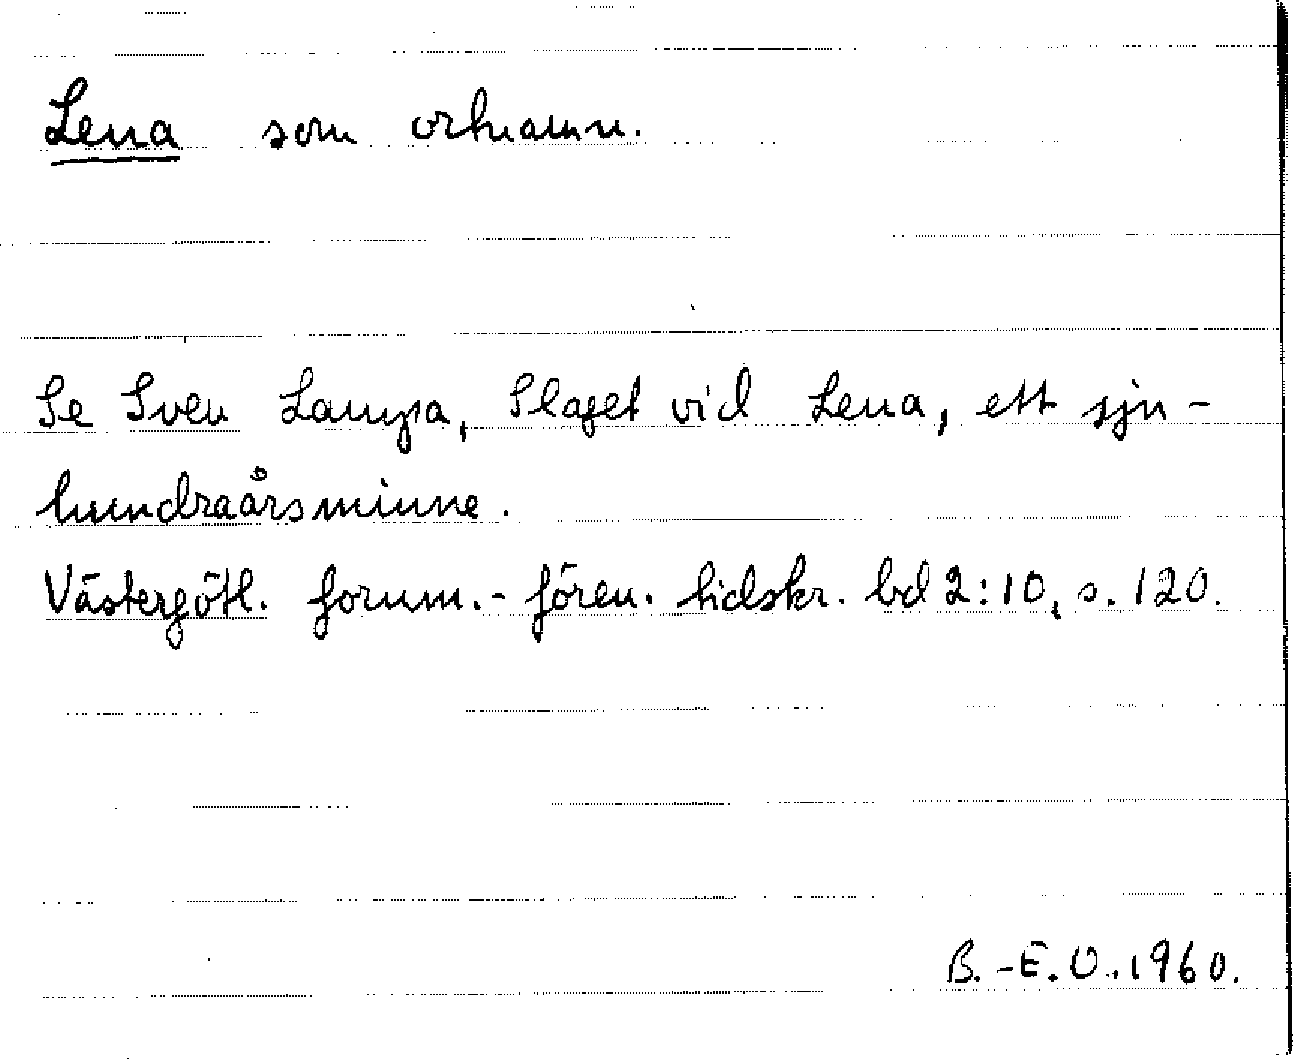 Lena som ortnamn.
Se Sven Lampa, Slaget vid Lena, ett sju-
hundraårsminne.
Västergötl. fornm.-fören. tidskr. bd 2:10, s. 120.
B.-E.O. 1960.